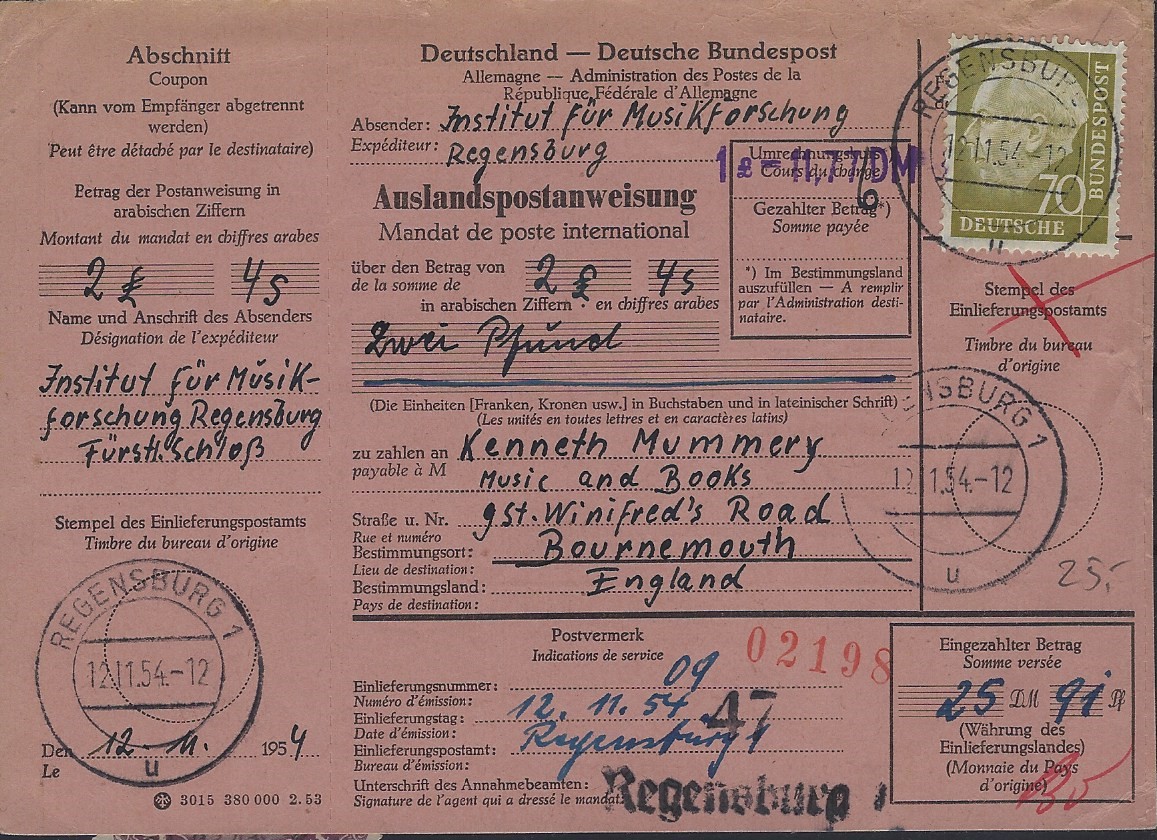 Abschnitt
Coupon
(Kann vom Empfänger abgetrennt
werden)
Peut être détaché par le destinataire)
Betrag der Postanweisung in
arabischen Ziffern
Montant du mandat en chiffres arabes
2 £ 4s
Name und Anschrift des Absenders
Désignation de l'expéditeur
Institut für Musik-
forschung Regensburg
Fürstl. Schloß
Stempel des Einlieferungspostamts
Timbre du bureau d'origine
REGENSBURG 1
12.11.54.-12
u
Den 12. 11. 1954
Le
3015 380 000 2.53
Deutschland — Deutsche Bundespost
Allemagne — Administration des Postes de la
République Fédérale d'Allemagne
Absender: Institut für Musikforschung
Expéditeur: Regensburg
Auslandspostanweisung
Mandat de poste international
über den Betrag von 2 £ 4s
de la somme de
in arabischen Ziffern · en chiffres arabes
Zwei Pfund
(Die Einheiten [Franken, Kronen usw.] in Buchstaben und in lateinischer Schrift)
(Les unités en toutes lettres et en caractères latins)
zu zahlen an Kenneth Mummery
payable à M Music and Books
Straße u. Nr. 9 St. Winifred's Road
Rue et numéro
Bestimmungsort: Bournemouth
Lieu de destination:
Bestimmungsland: England
Pays de destination:
1 £ = 11,77 DM
Umrechnungskurs
Cours du change
6
Gezahlter Betrag*)
Somme payée
*) Im Bestimmungsland
auszufüllen — A remplir
par l'Administration desti-
nataire.
REGENSBURG
12.11.54.-12
u
70
DEUTSCHE
BUNDESPOST
Stempel des
Einlieferungspostamts
Timbre du bureau
d'origine
REGENSBURG 1
12.11.54.-12
u
25,-
Postvermerk
Indications de service
02198
Einlieferungsnummer: 09
Numéro d'émission:
Einlieferungstag: 12. 11. 54
Date d'émission:
47
Einlieferungspostamt: Regensburg 1
Bureau d'émission:
Unterschrift des Annahmebeamten:
Signature de l'agent qui a dressé le mandat:
Regensburg 1
Eingezahlter Betrag
Somme versée
25 DM 91 Pf
(Währung des
Einlieferungslandes)
(Monnaie du Pays
d'origine)